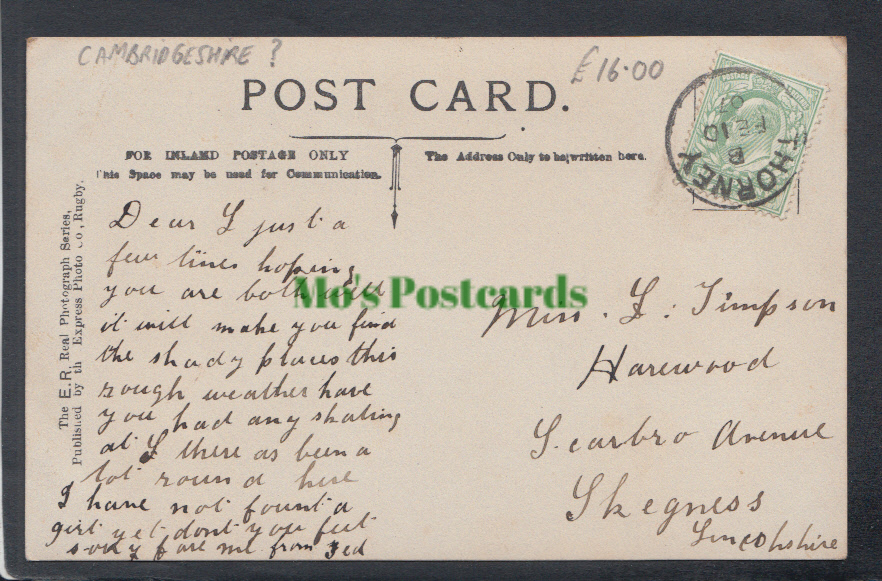 CAMBRIDGESHIRE ?
£16.00
POST CARD.
FOR INLAND POSTAGE ONLY
This Space may be used for Communication.
The Address Only to be written here.
THORNEY
B
FE 10
07
The E.R. Real Photograph Series,
Published by th Express Photo Co, Rugby.
Dear L just a
few lines hoping
you are both well
it will make you find
the shady places this
rough weather have
you had any skating
at S there as been a
lot round here
I have not found a
girl yet dont you feel
sorry fore me from Ted
Miss. L. Simpson
Harewood
Scarbro Avenue
Skegness
Lincolnshire
Mo's Postcards